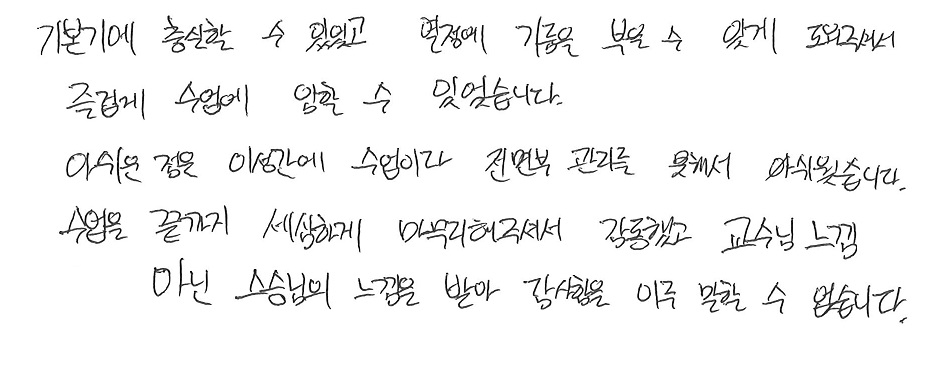 기본기에 충실할 수 있었고 열정에 기름을 부을 수 있게 도와주셔서
즐겁게 수업에 임할 수 있었습니다.
아쉬운 점은 이성간에 수업이다 전면부 관리를 못해서 아쉬웠습니다.
수업을 끝까지 세심하게 마무리해주셔서 감동했고 교수님 느낌
아닌 스승님의 느낌을 받아 감사함을 이루 말할 수 없습니다.